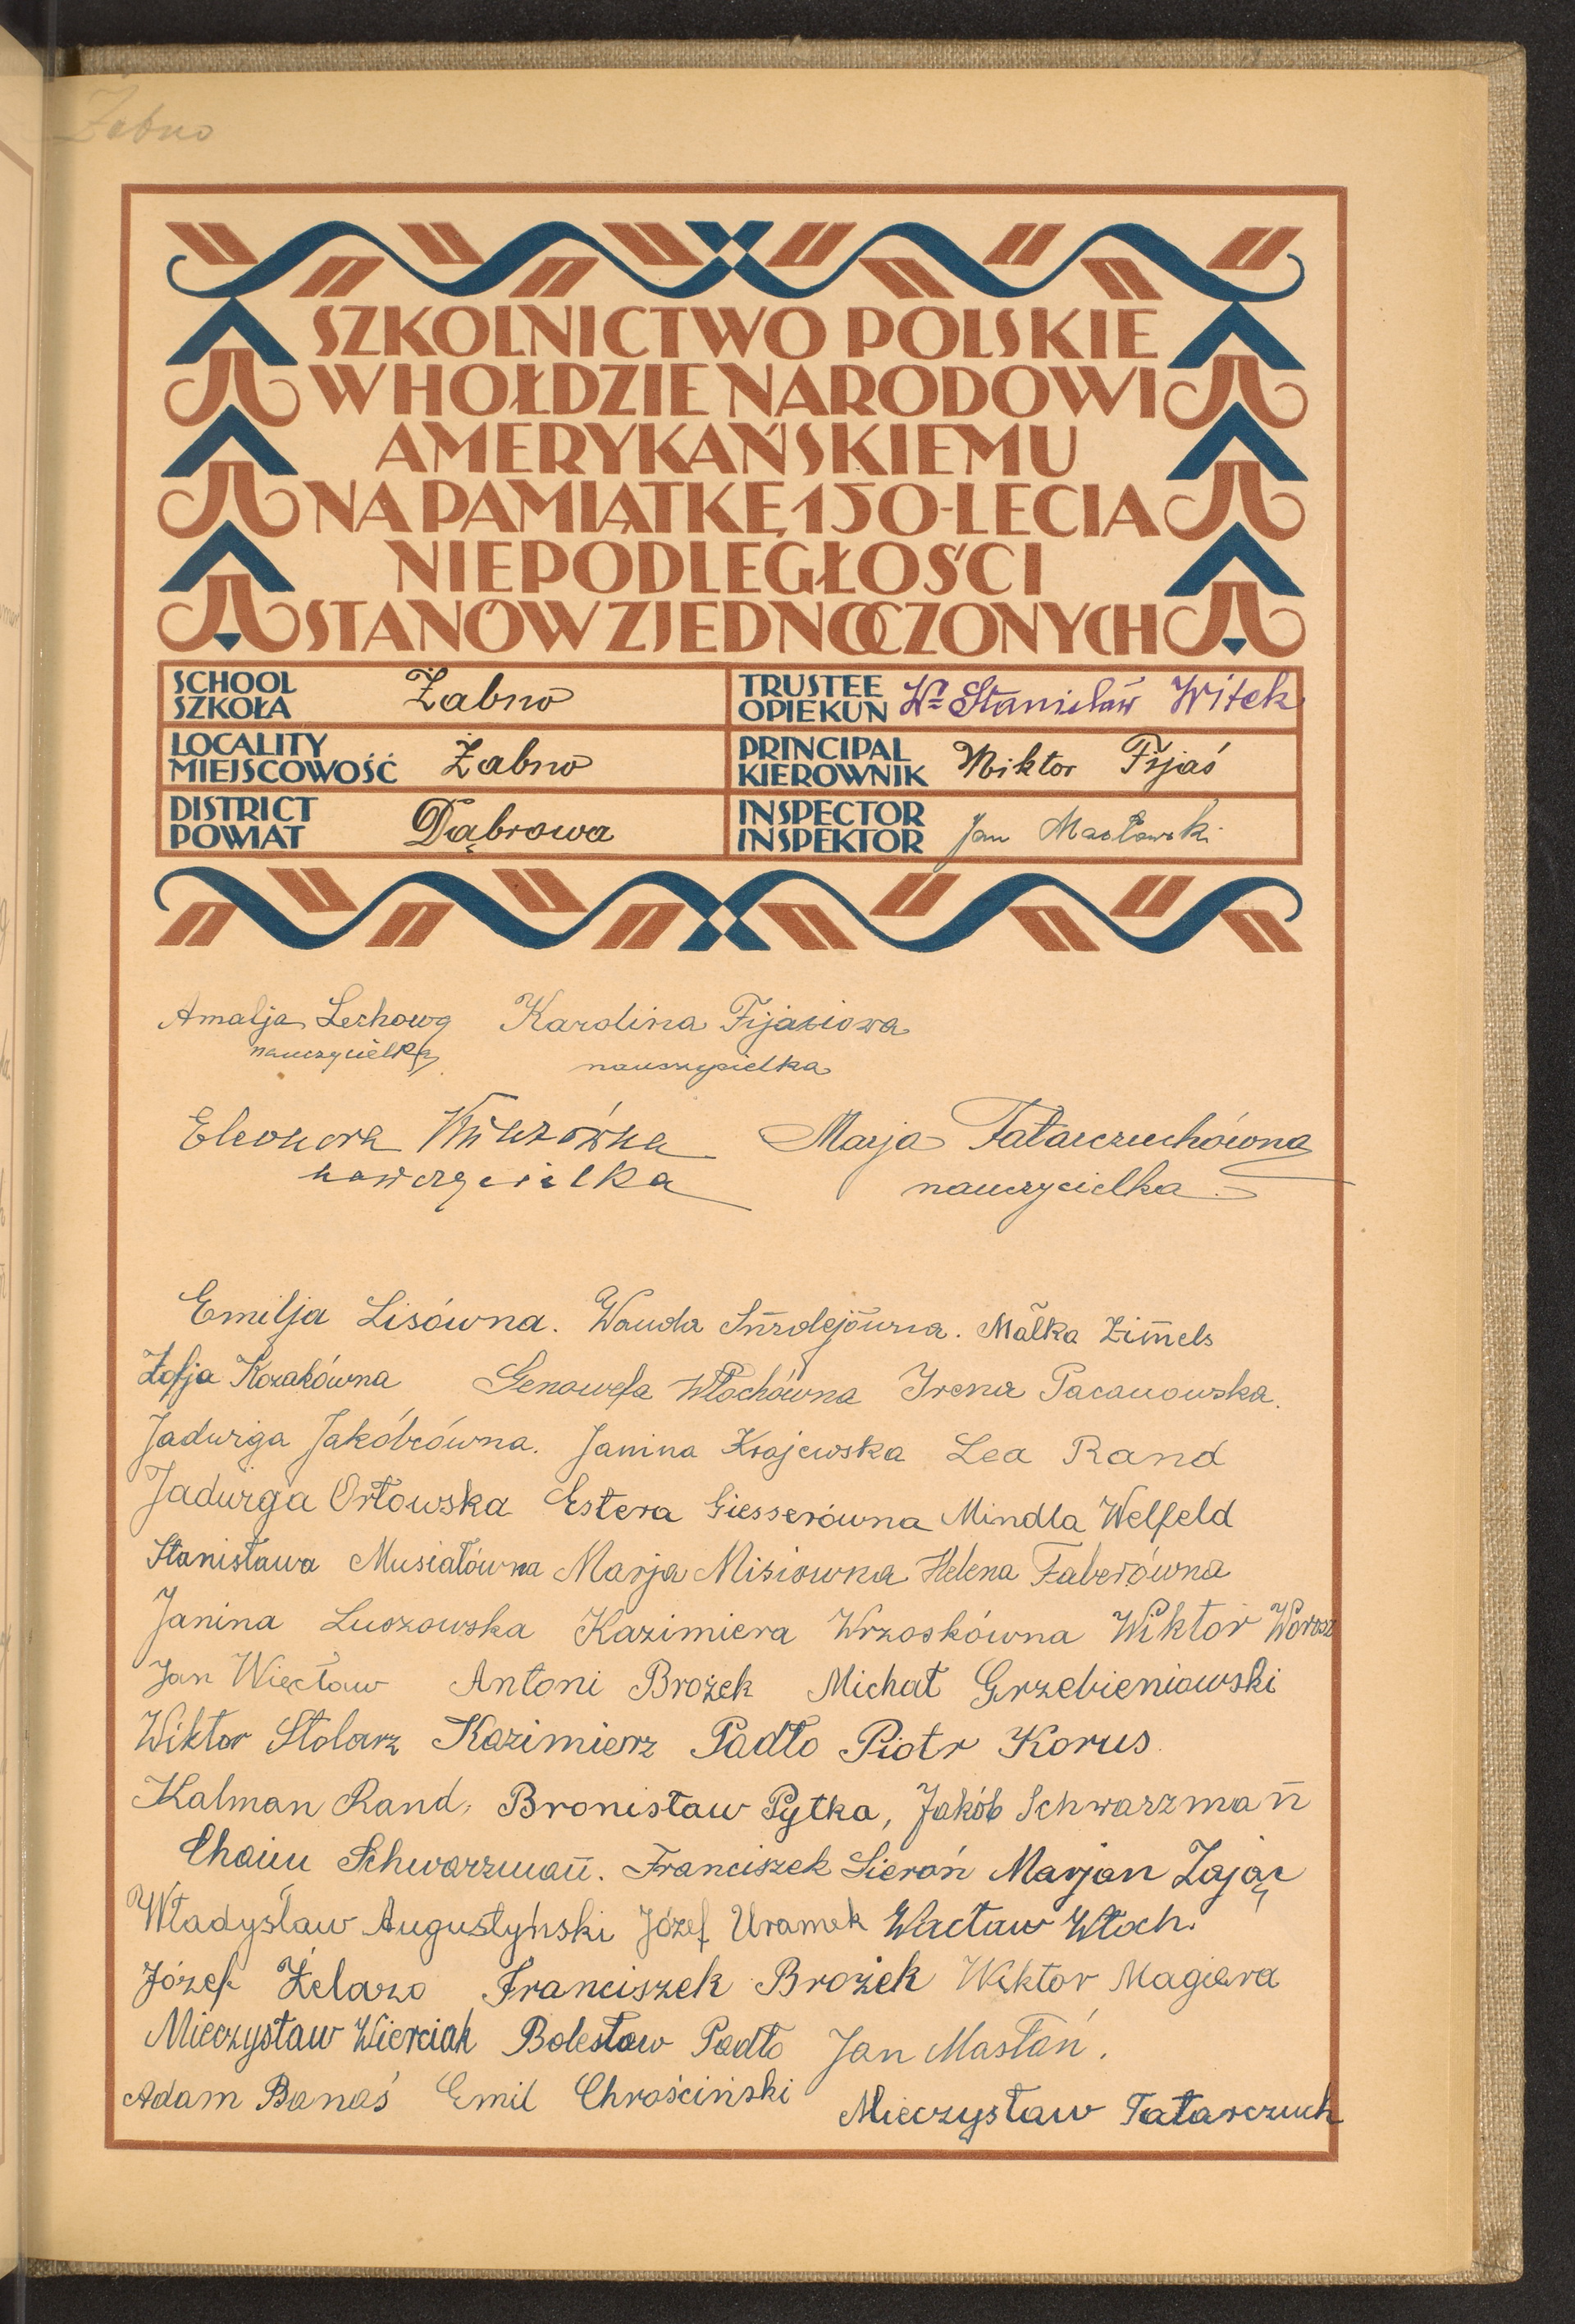 Żabno
SZKOLNICTWO POLSKIE
W HOŁDZIE NARODOWI
AMERYKAŃSKIEMU
NA PAMIĄTKĘ 150-LECIA
NIEPODLEGŁOŚCI
STANÓW ZJEDNOCZONYCH
SCHOOL SZKOŁA Żabno
TRUSTEE OPIEKUN Stanisław Witek
LOCALITY MIEJSCOWOŚĆ Żabno
PRINCIPAL KIEROWNIK Wiktor Fijaś
DISTRICT POWIAT Dąbrowa
INSPECTOR INSPEKTOR Jan Masławski
Amalja Lechowa Karolina Fijasiowa
nauczycielka nauczycielka
Eleonora Marja Tatarczuchówna
nauczycielka nauczycielka
Emilja Lisówna. Wanda Malka Zim̅els
Zofja Kozakówna Genowefa Włochówna Irena Pacanowska.
Jadwiga Jakóbcówna. Janina Krajewska Lea Rand
Jadwiga Orłowska Estera Giesserówna Mindla Welfeld
Stanisława Musiałówna Marja Misiowna Helena Faberówna
Janina Luszowska Kazimiera Wrzoskówna Wiktor Worosz
Jan Więcław Antoni Brożek Michał Grzebieniowski
Wiktor Stolarz Kazimierz Padło Piotr Korus
Kalman Rand, Bronisław Pytka, Jakób Schwarzman̅
Chaim Schwarzman̅. Franciszek Sieroń Marjan Zając
Władysław Augustyński Józef Uramek Wacław Włoch.
Józef Żelazo Franciszek Brożek Wiktor Magiera
Mieczysław Wierciak Bolesław Padło Jan Masłań.
Adam Banaś Emil Chrościński Mieczysław Tatarczuch